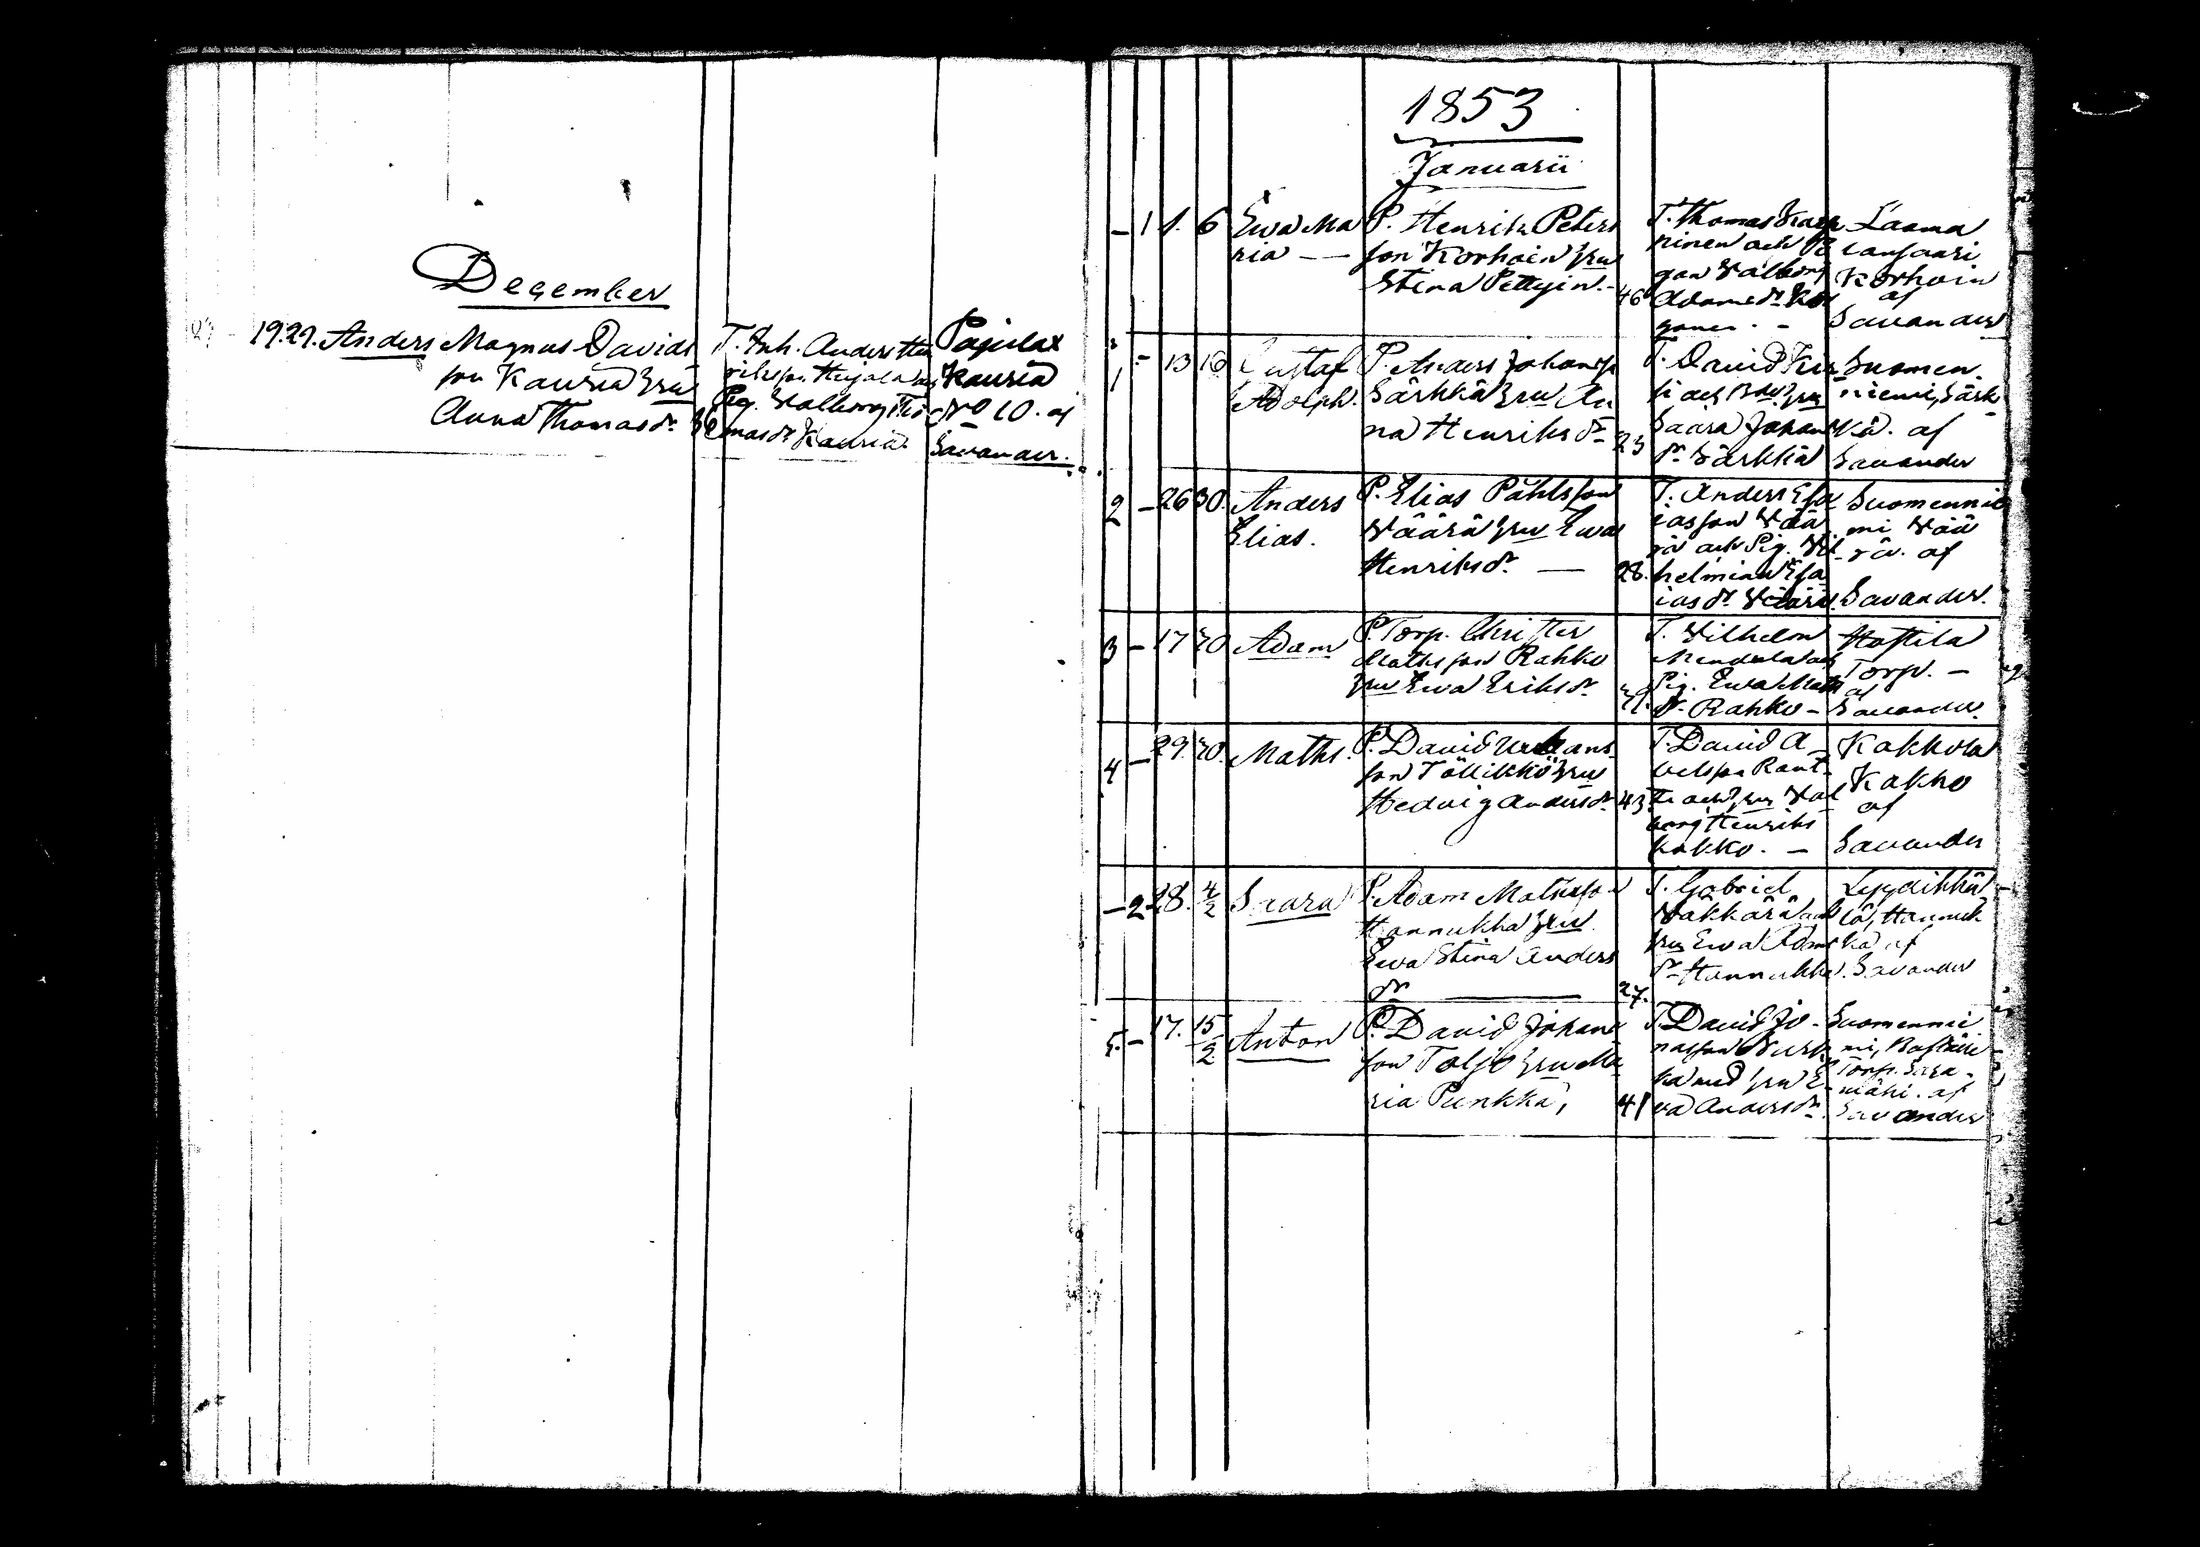 December
19. 29. Anders Magnus Davids
son Kauria hru
Anna Thomasdr. 
T. Inh. Anders Hen
rikson Hujala och
Pig. Walborg Tho
masdr Kauria
Pajulax
Kauria
No 10. af
Savander.
1853
Januarii
- 1 1. 6 Ewa Ma
ria -
P. Henrik Peters
son Korhoin hru
Stina Pettyin. - 46
T. Thomas
ninen och Pi
gan Walborg
Adamsdr
Laama
lansaari
Korhoin
af
Savander
1 - 13 16 Gustaf
Adolph.
P. Anders Johansson
Särkkä hru An
na Henriksdr 23
T. David
och hru
Saara Johans
dr Särkkä
Suomen
niemi, Särk
kä. af
Savander
2 - 26 30. Anders
Elias.
P. Elias Påhlsson
Wäärä hru Ewa
Henriksdr. - 28.
T. Anders Esa
iasson Wää
rä och Pig. Wil
helmina Esa
iasdr Wäärä
Suomennie
mi Wää
rä. af
Savander.
3 - 17 30 Adam
P. Torp. Christer
Mathsson Rahko
hru Ewa Eriksdr
T. Wilhelm
och
Pig. Ewa Maths
dr. Rahko -
Hostila
Torp. -
af
Savander.
4 - 29. 30. Maths.
P. David Urbans
son Töllikkö hru
Hedvig Andersdr. 43
T. David A
belsson Rant
och hru Wal
borg Henriks
Kakko. -
Kakkola
Kakko
af
Savander
- 2 28. 4/2 Saara
P. Adam Mathsson
Hannukka hru
Ewa Stina Anders
dr - 27.
T. Gabriel
Wäkkärä och
hru Ewa Adams
dr Hannukka.
Lyydikkä
lä, Hannuk
ka af
Savander
5. - 17. 15/2 Anton
P. David Johans
son Toljo hru Ma
ria Punkka, 41
T. David Jo-
nasson
ka med hru E-
va Andersdr.
Suomennie
mi,
Torp.
mäki. af
Savander